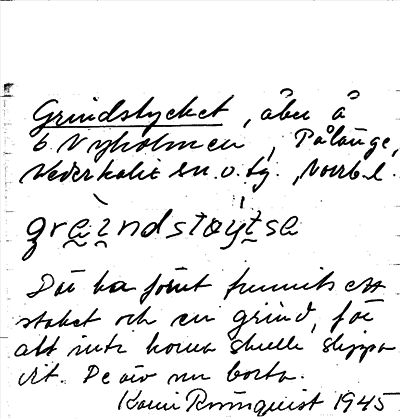 Grindstycket, åker å
ö Nyholmen, Pålänge,
Nederkalix sn. o. tg., Norrb. l.
grèi̯ndstøy̯tse
Där har förut funnits ett
staket och en grind, för
att inte korna skulle slippa
dit. De äro nu borta.
Karin Rönnquist 1945